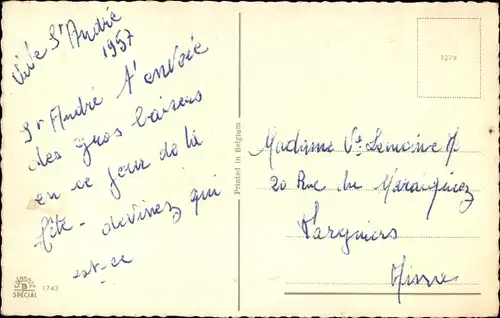 Vive St André
1957
St André t'envoie
des gros baisers
en ce jour de la
fête - devinez qui
est-ce
SPECIAL
1743
Printed in Belgium
1279
Madame Vve Lemoine
20 Rue du
Aisne